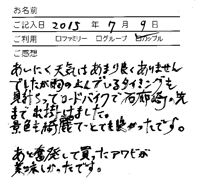 お名前
ご記入日 2015年 7月 9日
ご利用 □ファミリー □グループ ☑カップル
ご感想
あいにく天気はあまり良くありません
でしたが雨の止んでいるタイミングを
見計らってロードバイクで石廊崎の先
まで お出掛けました。
景色も綺麗でとても良かったです。
あと奮発して買ったアワビが
美味しかったです。